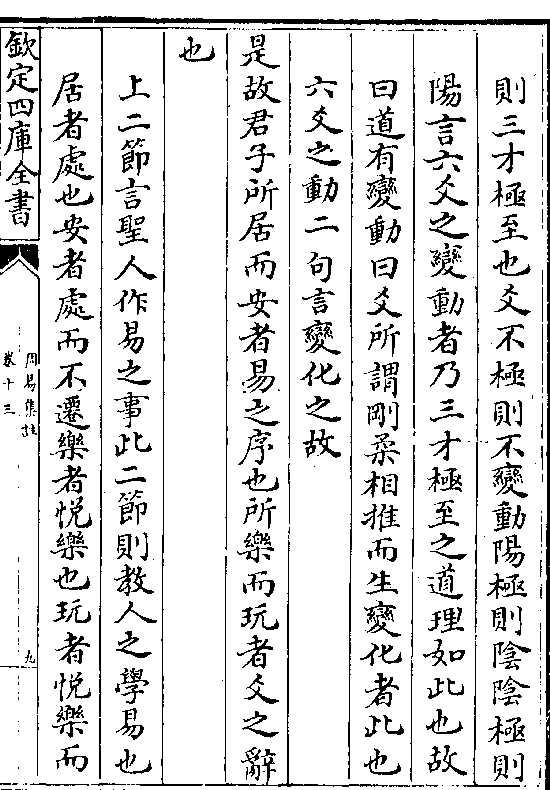 則三才極至也爻不極則不變動陽極則陰陰極則
陽言六爻之變動者乃三才極至之道理如此也故
曰道有變動曰爻所謂剛柔相推而生變化者此也
六爻之動二句言變化之故
是故君子所居而安者易之序也所樂而玩者爻之辭
也
上二節言聖人作易之事此二節則教人之學易也
居者處也安者處而不遷樂者悅樂也玩者悅樂而
欽定四庫全書
周易集註
卷十三
九